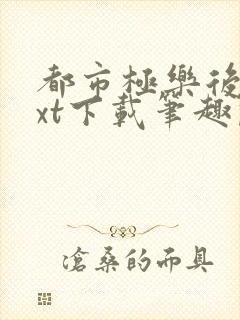 都市極樂後
xt下載筆趣
滄桑的面具